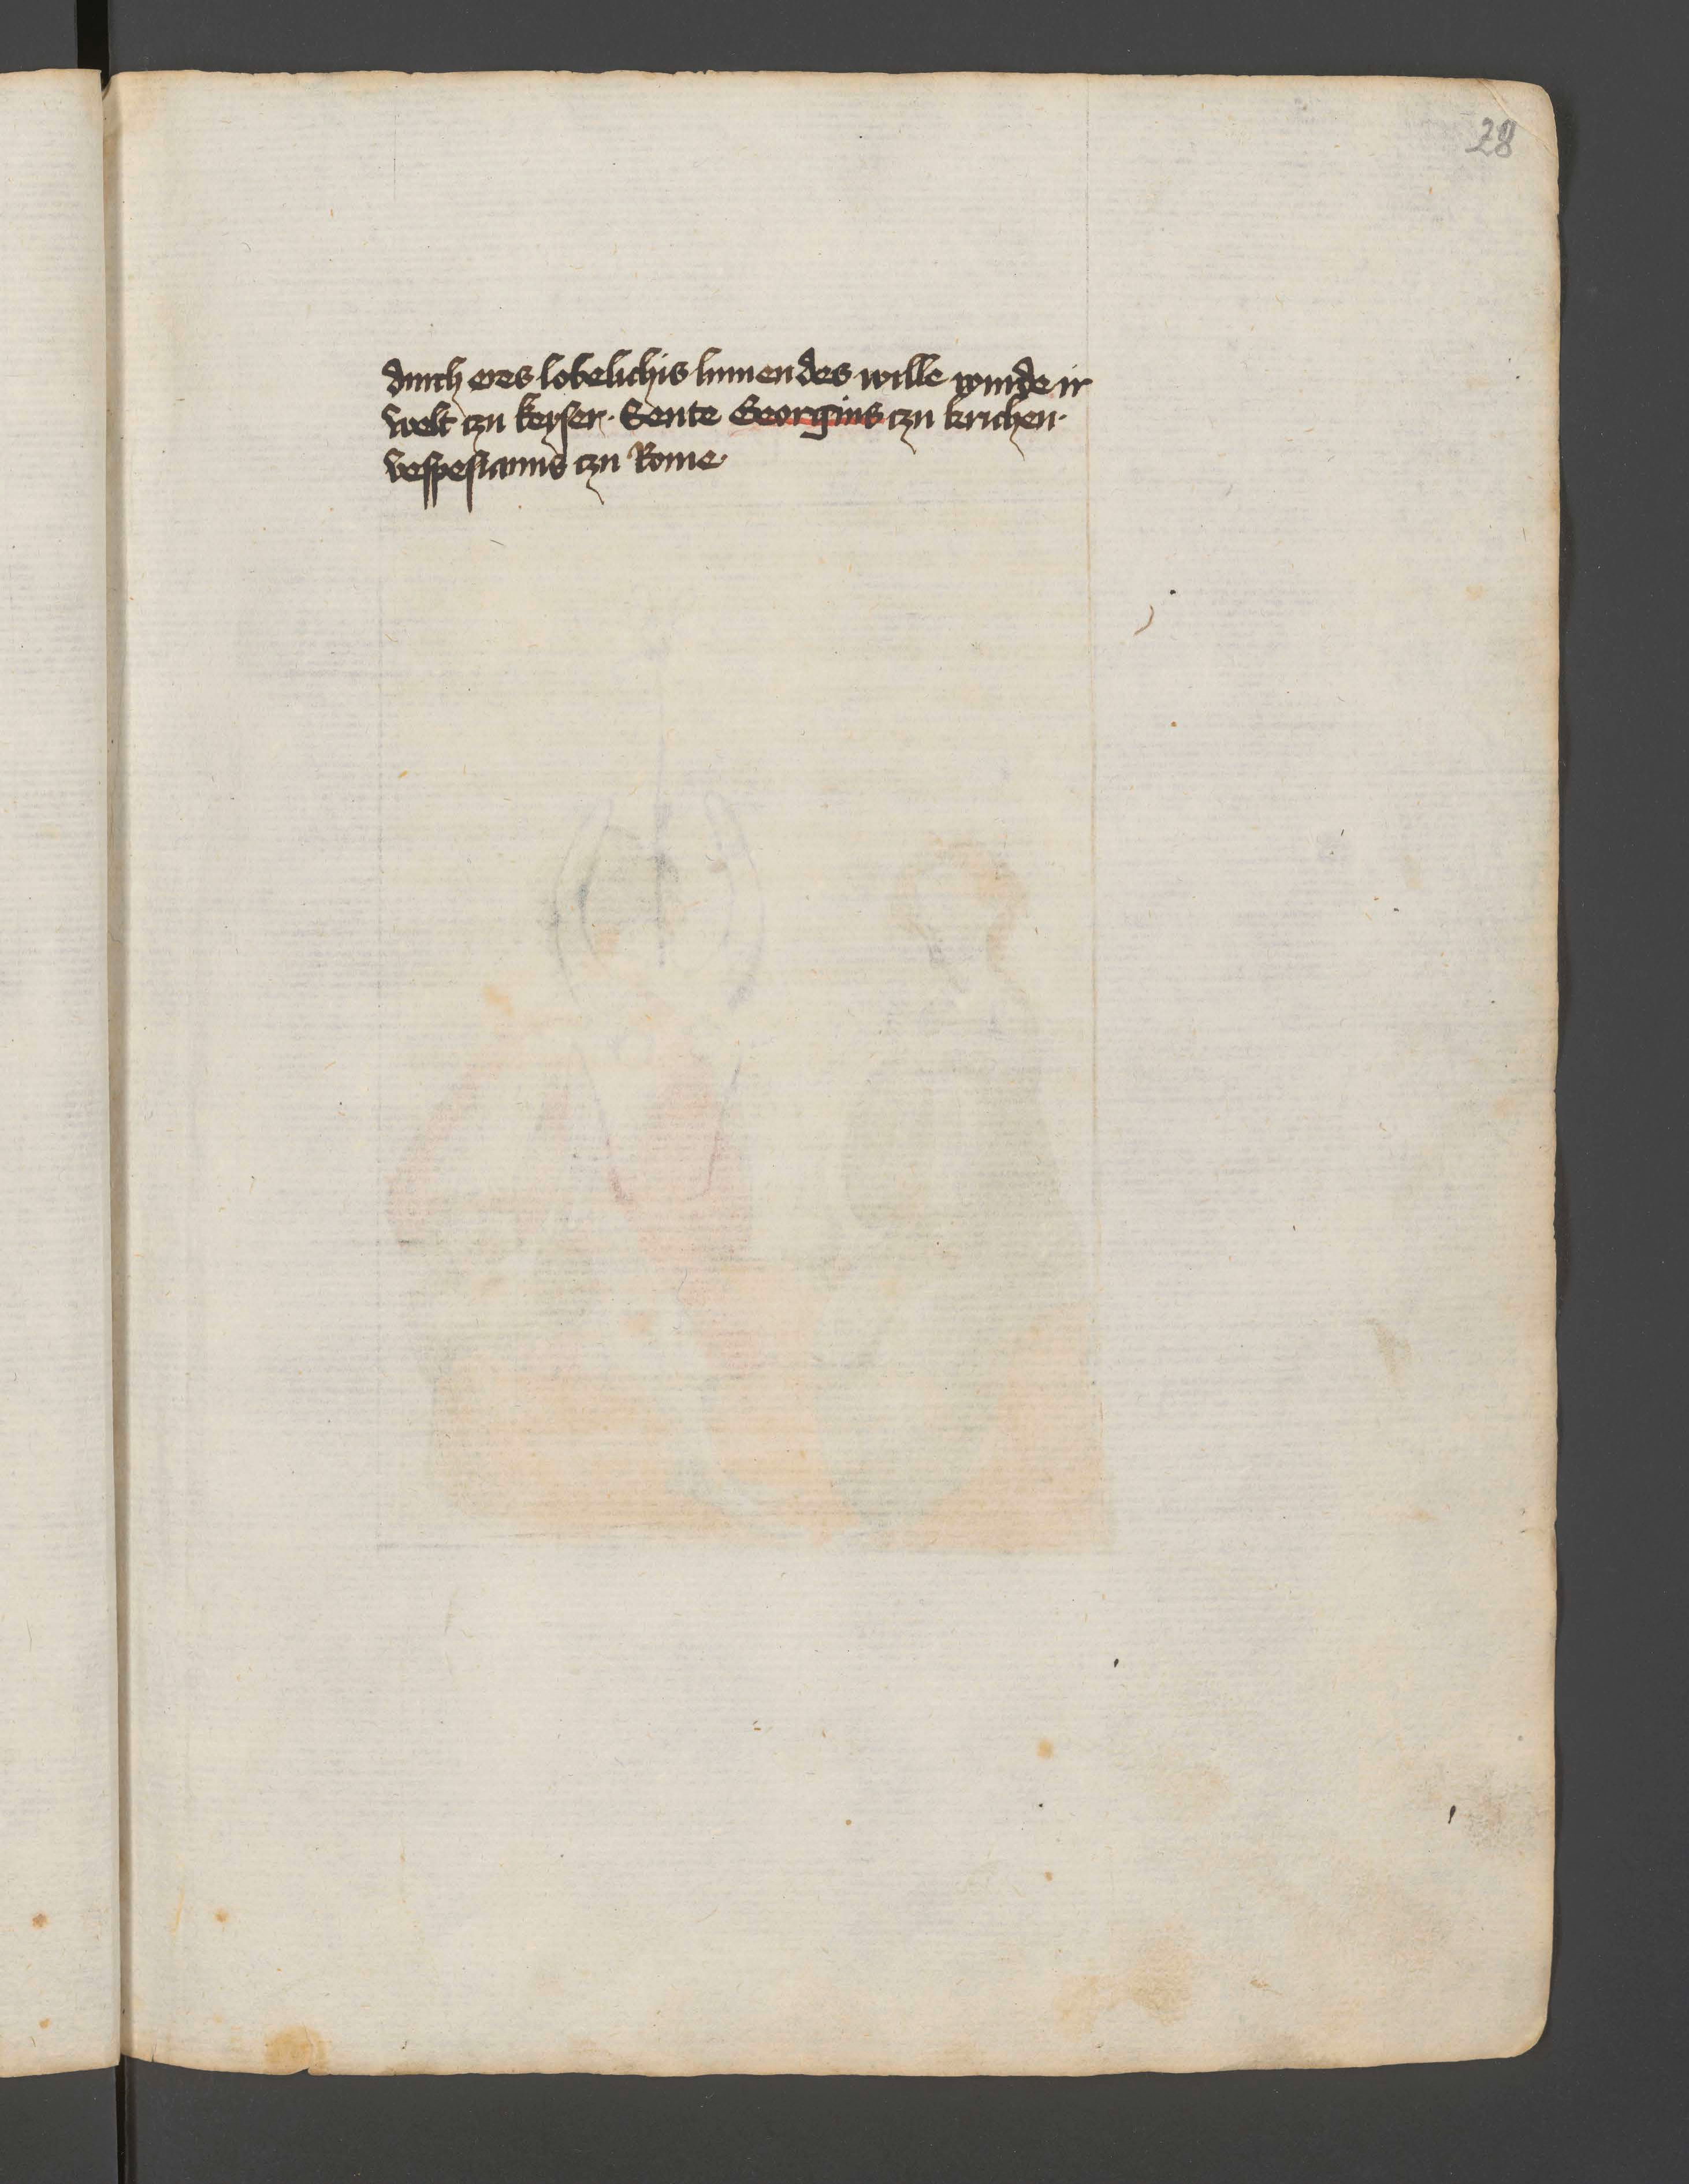 28
durch eres lobelichis lumendes wille wurde ir
welt czu keyser · Sente Georgius czu krichen ·
Vespesianus czu Rome ·